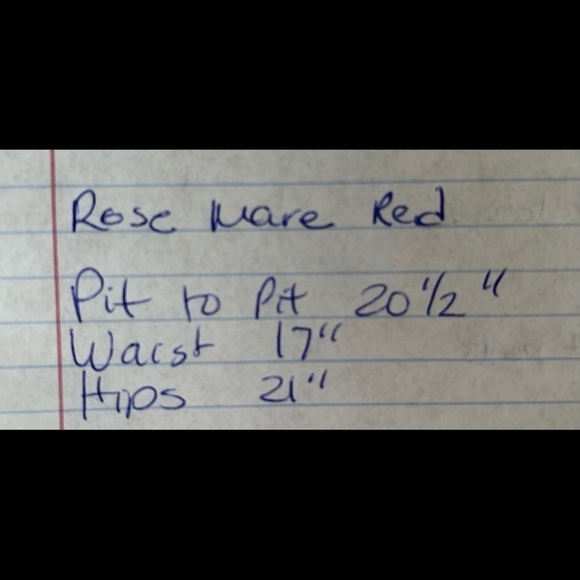 Rose Mare Red
Pit to Pit 20 1/2 "
Waist 17"
Hips 21"